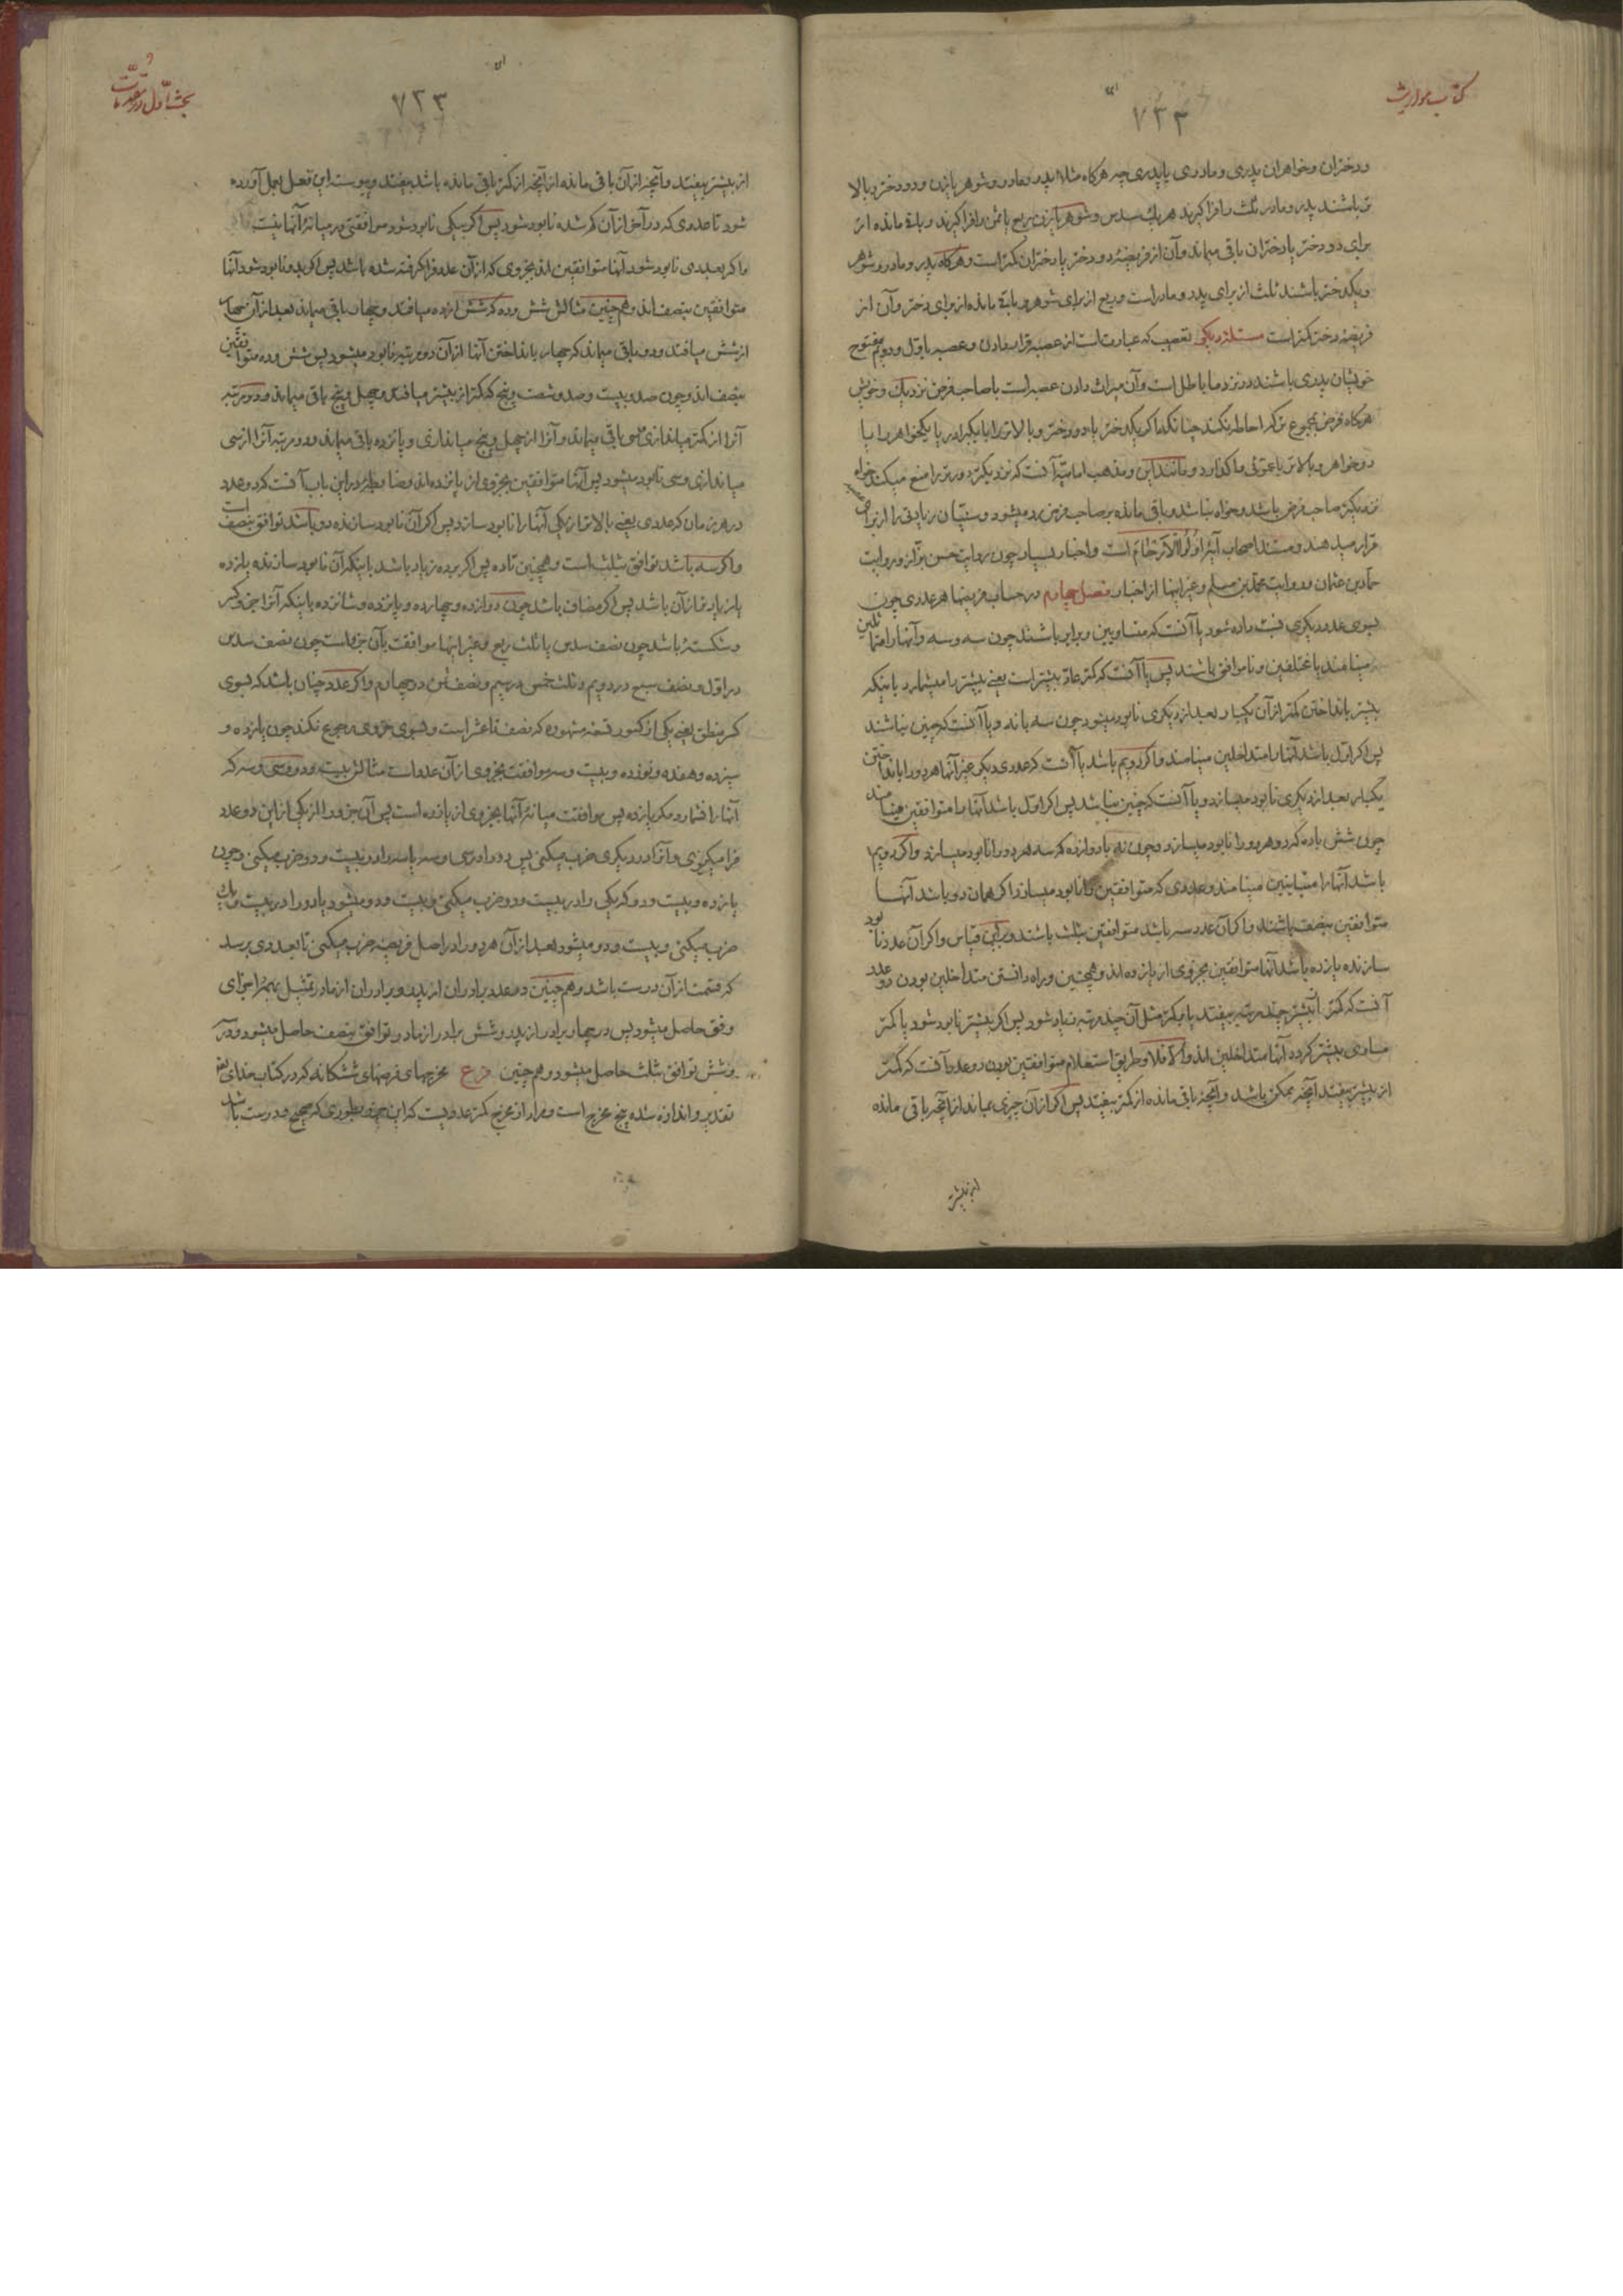 کتاب مواریث
۷۲۳
ودختران وخواهران پدری ومادری یا پدری چه هرکاه مثلا پدر ومادر وشوهر یا زن ودو دختر وبالا
تر باشند پدر ومادر ثلث را فرا کیرند هر یك سدس وشوهر یا زن ربع یا ثمن را فرا کیرند وباقی مانده از
برای دو دختر یا دختران باقی میماند وآن از فریضهٔ دو دختر یا دختران کمتر است وهرکاه پدر ومادر وشوهر
ویکدختر باشند ثلث از برای پدر ومادر است وربع از برای شوهر وباقی مانده از برای دختر وآن از
فریضهٔ دختر کمتر است مسئله دیکر تعصیب که عبارت است از عصبه قرار دادن وعصبه باول ودویم مفتوح
خویشان پدری باشند در نزد ما باطل است وآن میراث دادن عصبه است با صاحب فرض نزدیك وخویش
هرکاه فرض بمجموع ترکه احاطه نکند چنانکه اکر یکدختر یا دو دختر وبالاتر را با یکبرادر یا یکخواهر را با
دو خواهر وبالاتر یا عموئی واکذارد ومانند این ومذهب امامیه آنست که نزدیکتر دورتر را منع میکند خواه
نزدیکتر صاحب فرض باشد وخواه نباشد وباقی مانده بر صاحب فرض رد میشود وسنیان زیادتی را از برای
قرار میدهند ومستند اصحاب آیهٔ اولوا الارحام است واخبار بسیار چون روایت حسن بزاز وروایت
حماد بن عثمان وروایت محمد بن مسلم وغیر اینها از اخبار فصل چهارم در حساب فریضها هر عددی چون
بسوی عدد دیکری نسبت داده شود یا آنست که متساویین وبرابر باشند چون سه وسه وآنها را متماثلین
مینامند یا مختلفین ونا موافق باشند پس یا آنست که کمتر عاد بیشتر است یعنی بیشتر را میشمارد باینکه
بیشتر بانداختن کمتر از آن یکبار بعد از دیکری نابود میشود چون سه با نه ویا آنست که چنین نباشند
پس اکر اول باشد آنها را متداخلین مینامند واکر دویم باشد یا آنست که عددی دیکر غیر آنها هر دو را بانداختن
یکبار بعد از دیکری نابود میسازد ویا آنست که چنین نباشد پس اکر اول باشد آنها را متوافقین مینامند
چون شش با ده که دو هر دو را نابود میسازد وچون نه با دوازده که سه هر دو را نابود میسازد واکر دویم
باشد آنها را متباینین مینامند وعددی که متوافقین را نابود میسازد اکر همان دو باشد آنها
متوافقین بنصف باشند واکر آن عدد سه باشد متوافقین بثلث باشند وبر این قیاس واکر آن عدد نابود
سازنده یازده باشد آنها متوافقین بجزوی از یازده اند وهمچنین وراه دانستن متداخلین بودن دو عدد
آنست که کمتر از بیشتر چند مرتبه بیفتد یا بر کمتر مثل آن چند مرتبه زیاد شود پس اکر بیشتر نابود شود یا کمتر
مساوی بیشتر کردد آنها متداخلین اند والا فلا وطریق استعلام متوافقین بودن دو عدد آنست که کمتر
از بیشتر بیفتد آنچه ممکن باشد وآنچه باقی مانده از کمتر بیفتد پس اکر از آن چیزی بماند از آنچه باقی مانده
از بیشتر
بحث اول در مقدمات
۷۲۳
از بیشتر بیفتد وآنچه از آن باقی مانده از آنچه از کمتر باقی مانده باشد بیفتد وپیوسته این فعل بعمل آورده
شود تا عددی که در آخر از آن کم شده نابود شود پس اکر بیکی نابود شود موافقتی در میانهٔ آنها نیست
واکر بعددی نابود شود آنها متوافقین اند بجزوی که از آن عدد فرا کرفته شده باشد پس اکر بدو نابود شود آنها
متوافقین بنصف اند وهم چنین مثالش شش وده که شش از ده میافتد وچهار باقی میماند بعد از آن چهار
از شش میافتد ودو باقی میماند که چهار بانداختن آنها از آن دو مرتبه نابود میشود پس شش وده متوافقین
بنصف اند وچون صد وبیست وصد وشصت وپنج که کمتر از بیشتر میافتد وچهل وپنج باقی میماند ودو مرتبه
آنرا از کمتر میاندازی سی باقی میماند وآنرا از چهل وپنج میاندازی وپانزده باقی میماند ودو مرتبه آنرا از سی
میاندازی وسی نابود میشود پس آنها متوافقین بجزوی از پانزده اند وضابطه در این باب آنست که دو عدد
در هر زمان که عددی یعنی بالاتر از یکی آنها را نابود سازد پس اکر آن نابود سازنده دو باشد توافق بنصف است
واکر سه باشد توافق بثلث است وهمچنین تا ده پس اکر بر ده زیاد باشد باینکه آن نابود سازنده یازده
یا زیادتر از آن باشد پس اکر مضاف باشد چون دوازده وچهارده وپانزده وشانزده باینکه آنرا جزو کسر
وشکستهٔ باشد چون نصف سدس یا ثلث ربع وغیر اینها موافقت بآن جزو است چون نصف سدس
در اول ونصف سبع در دویم وثلث خمس در سیم ونصف ثمن در چهارم واکر عدد چنان باشد که بسوی
کسر منطق یعنی یکی از کسور تسعهٔ مشهوره که نصف تا عشر است وبسوی جزوی رجوع نکند چون یازده و
سیزده وهفده ونوزده وبیست وسه موافقت بجزوی از آن عدد است مثالش بیست ودو وسی وسه که
آنها را نشمارد مکر یازده پس موافقت میانهٔ آنها بجزوی از یازده است پس آن جزو را از یکی از این دو عدد
فرا میکیری وآنرا در دیکری ضرب میکنی پس دو را در سی وسه یا سه را در بیست ودو ضرب میکنی وچون
یازده وبیست ودو که یکی را در بیست ودو ضرب میکنی وبیست ودو میشود یا دو را در یازده
ضرب میکنی وبیست ودو میشود بعد از آن هر دو را در اصل فریضه ضرب میکنی تا بعددی برسد
که قسمت از آن درست باشد وهم چنین در عدد برادران از پدر وبرادران از مادر بمثل اجزای
وفق حاصل میشود پس در چهار برادر از پدر وشش برادر از مادر توافق بنصف حاصل میشود ودر سه
وشش توافق بثلث حاصل میشود وهم چنین فرع مخرجهای فرضهای ششکانه که در کتاب خدای تعالی
تقدیر واندازه شده پنج مخرج است ومراد از مخرج کمتر عددیست که این جزو بطوری که صحیح ودرست باشد